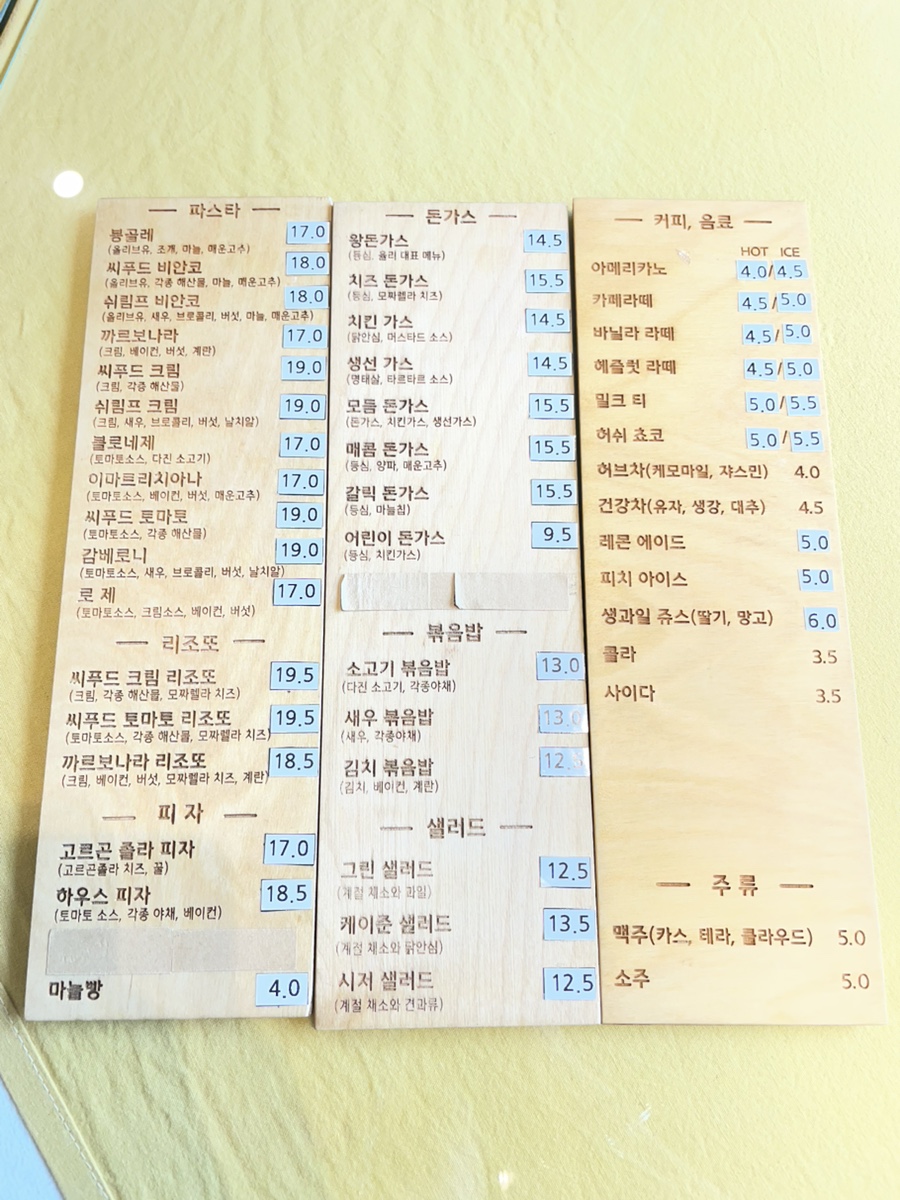 파스타
봉골레 17.0
(올리브유, 조개, 마늘, 매운고추)
씨푸드 비안코 18.0
(올리브유, 각종 해산물, 마늘, 매운고추)
쉬림프 비안코 18.0
(올리브유, 새우, 브로콜리, 버섯, 마늘, 매운고추)
까르보나라 17.0
(크림, 베이컨, 버섯, 계란)
씨푸드 크림 19.0
(크림, 각종 해산물)
쉬림프 크림 19.0
(크림, 새우, 브로콜리, 버섯, 날치알)
볼로네제 17.0
(토마토소스, 다진 소고기)
이마트리치아나 17.0
(토마토소스, 베이컨, 버섯, 매운고추)
씨푸드 토마토 19.0
(토마토소스, 각종 해산물)
감베로니 19.0
(토마토소스, 새우, 브로콜리, 버섯, 날치알)
로 제 17.0
(토마토소스, 크림소스, 베이컨, 버섯)
리조또
씨푸드 크림 리조또 19.5
(크림, 각종 해산물, 모짜렐라 치즈)
씨푸드 토마토 리조또 19.5
(토마토소스, 각종 해산물, 모짜렐라 치즈)
까르보나라 리조또 18.5
(크림, 베이컨, 버섯, 모짜렐라 치즈, 계란)
피 자
고르곤 졸라 피자 17.0
(고르곤졸라 치즈, 꿀)
하우스 피자 18.5
(토마토 소스, 각종 야채, 베이컨)
마늘빵 4.0
돈가스
왕돈가스 14.5
(등심, 율리 대표 메뉴)
치즈 돈가스 15.5
(등심, 모짜렐라 치즈)
치킨 가스 14.5
(닭안심, 머스타드 소스)
생선 가스 14.5
(명태살, 타르타르 소스)
모듬 돈가스 15.5
(돈가스, 치킨가스, 생선가스)
매콤 돈가스 15.5
(등심, 양파, 매운고추)
갈릭 돈가스 15.5
(등심, 마늘칩)
어린이 돈가스 9.5
(등심, 치킨가스)
볶음밥
소고기 볶음밥 13.0
(다진 소고기, 각종야채)
새우 볶음밥 13.0
(새우, 각종야채)
김치 볶음밥 12.5
(김치, 베이컨, 계란)
샐러드
그린 샐러드 12.5
(계절 채소와 과일)
케이준 샐러드 13.5
(계절 채소와 닭안심)
시저 샐러드 12.5
(계절 채소와 견과류)
커피, 음료
HOT ICE
아메리카노 4.0/4.5
카페라떼 4.5/5.0
바닐라 라떼 4.5/5.0
헤즐럿 라떼 4.5/5.0
밀크 티 5.0/5.5
허쉬 쵸코 5.0/5.5
허브차(케모마일, 쟈스민) 4.0
건강차(유자, 생강, 대추) 4.5
레몬 에이드 5.0
피치 아이스 5.0
생과일 쥬스(딸기, 망고) 6.0
콜라 3.5
사이다 3.5
주 류
맥주(카스, 테라, 클라우드) 5.0
소주 5.0